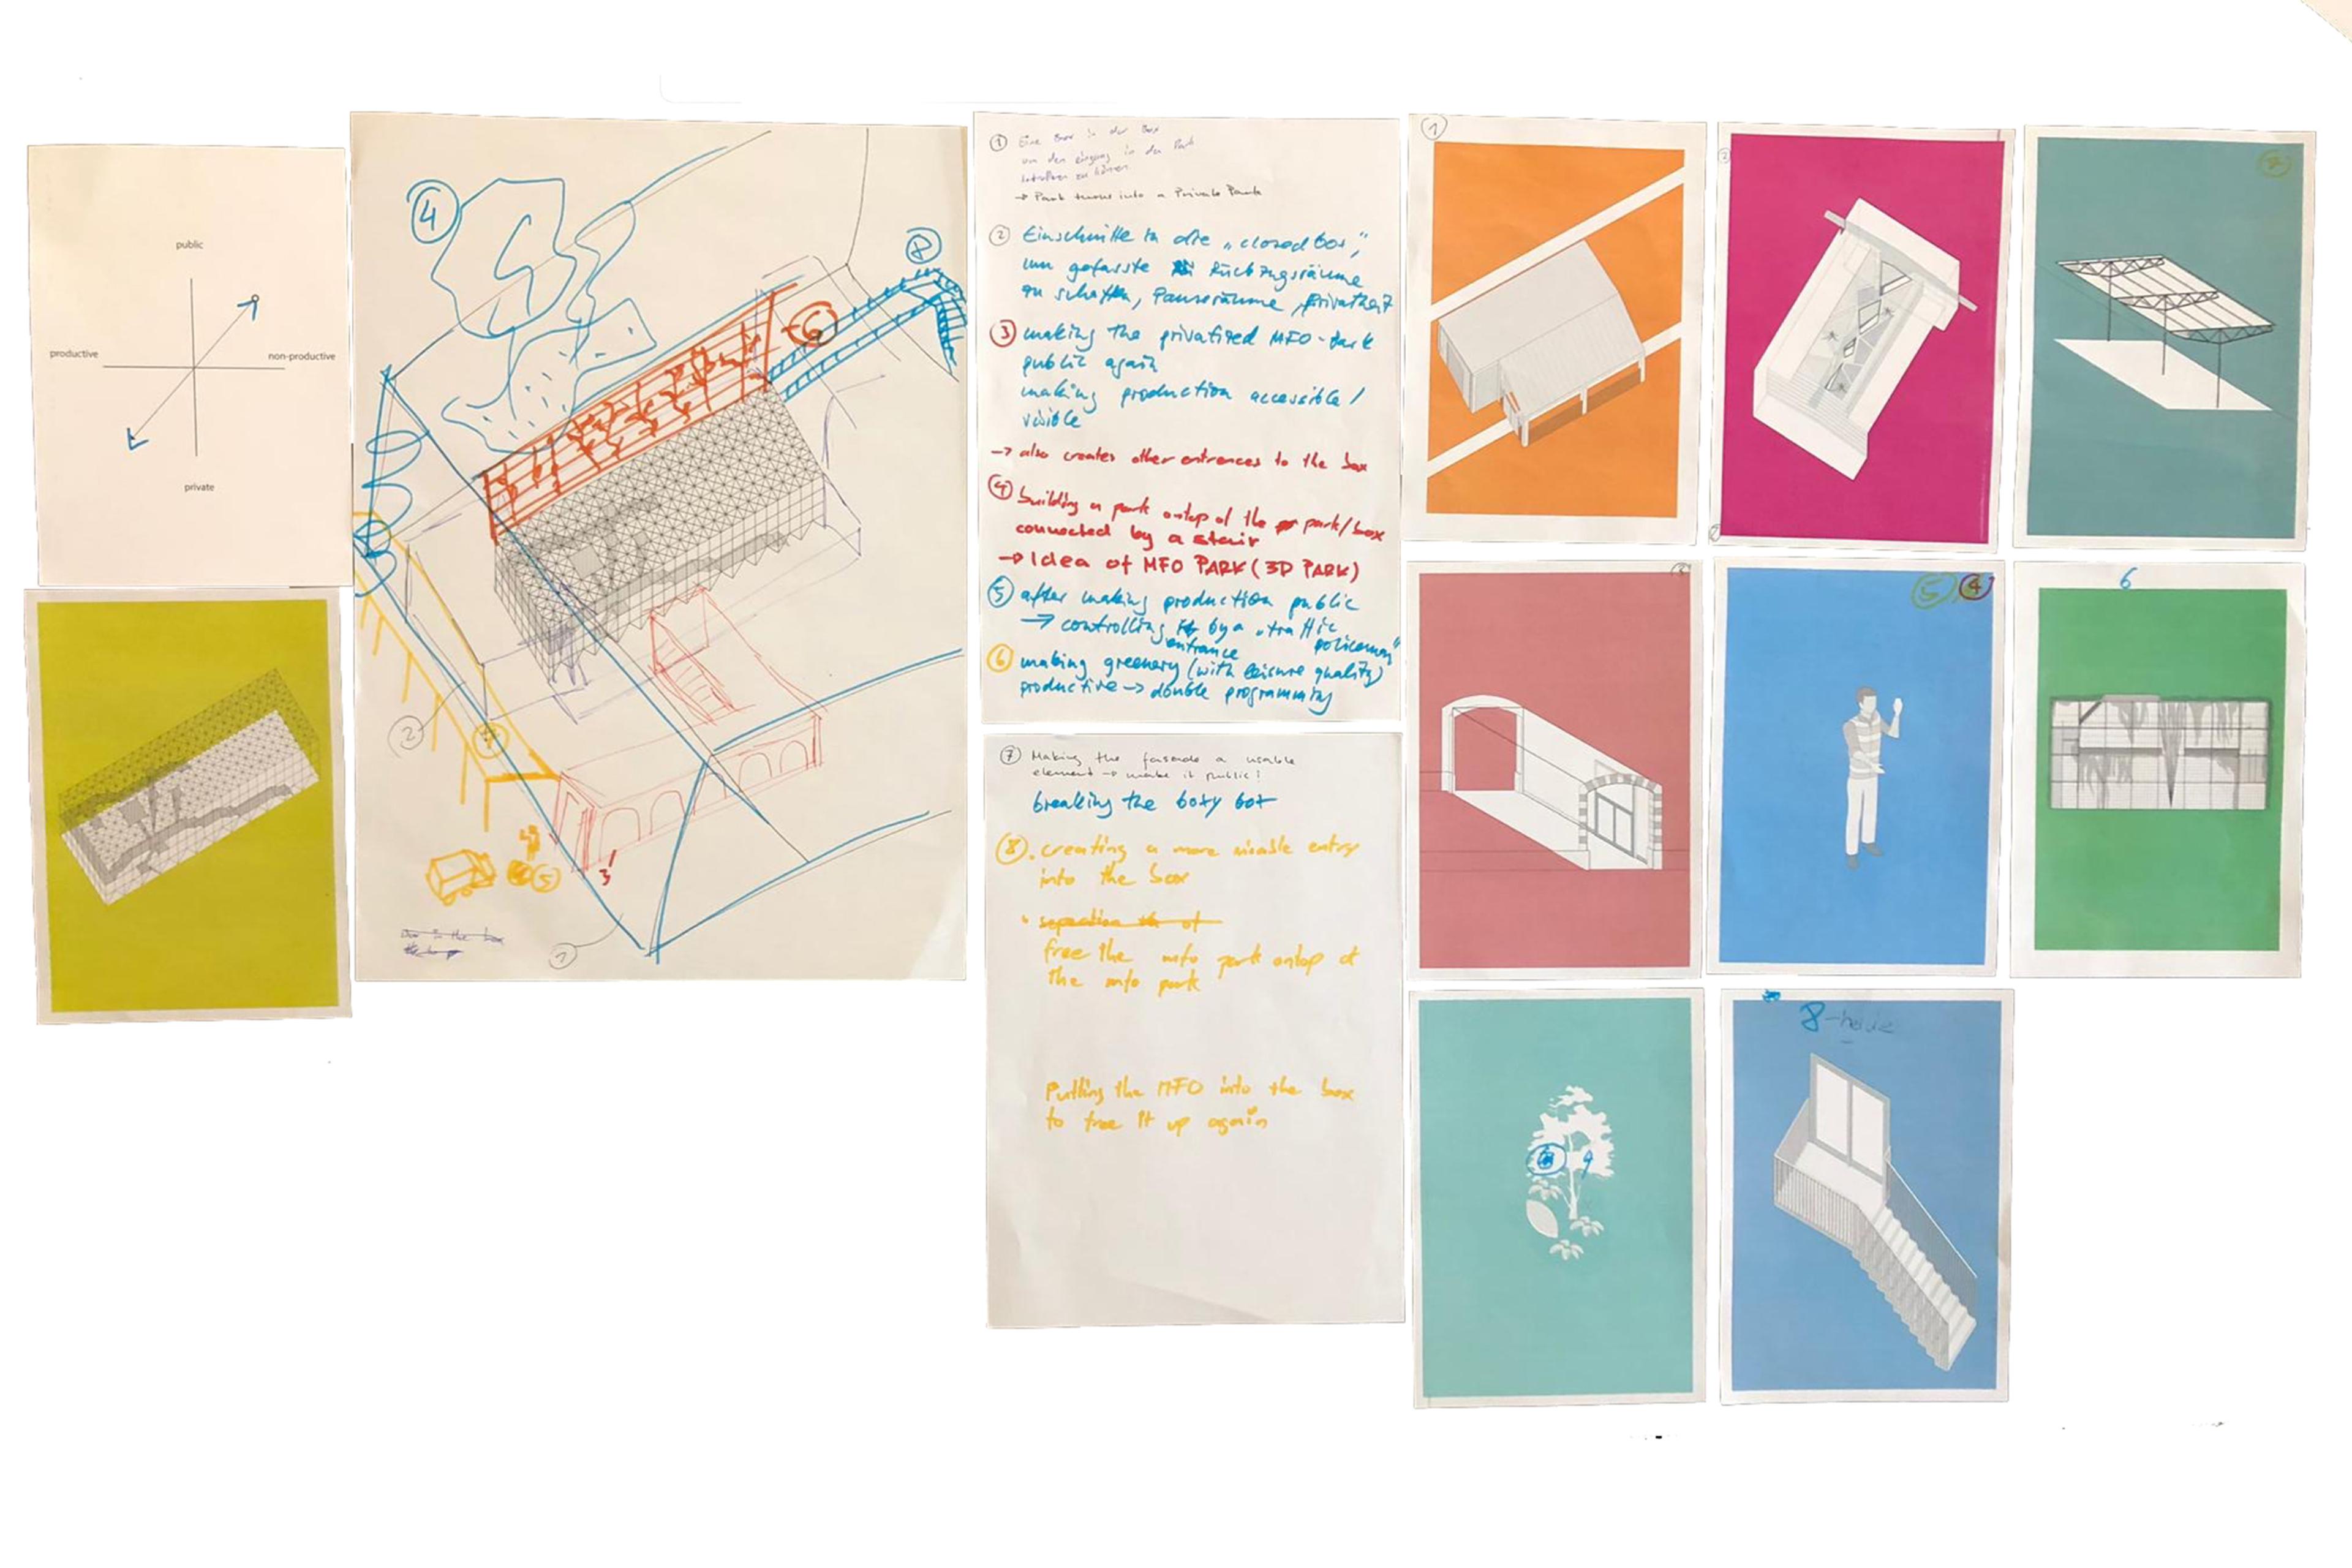 public
productive
non-productive
private
4
8
6
2
7
5
3
1
① Eine Box in der Box
um den eingang in den Park
kontrollieren zu können
→ Park turns into a Private Park
② Einschnitte in die „closed box",
um gefasste Rückzugsräume
zu schaffen, Pauseräume, Privatheit
③ making the privatized MFO-Park
public again
making production accessible /
visible
→ also creates other entrances to the box
④ building a park ontop of the park/box
connected by a stair
→ Idea of MFO PARK (3D PARK)
⑤ after making production public
→ controlling it by a „traffic
entrance policeman"
⑥ making greenery (with leisure quality)
productive → double programming
⑦ Making the fassade a usable
element → make it public!
breaking the boxy box
⑧. creating a more visible entry
into the box
separation of
free the mfo park ontop of
the mfo park
Putting the MFO into the box
to free it up again
1
2
7
3
5 4
6
6 9
8